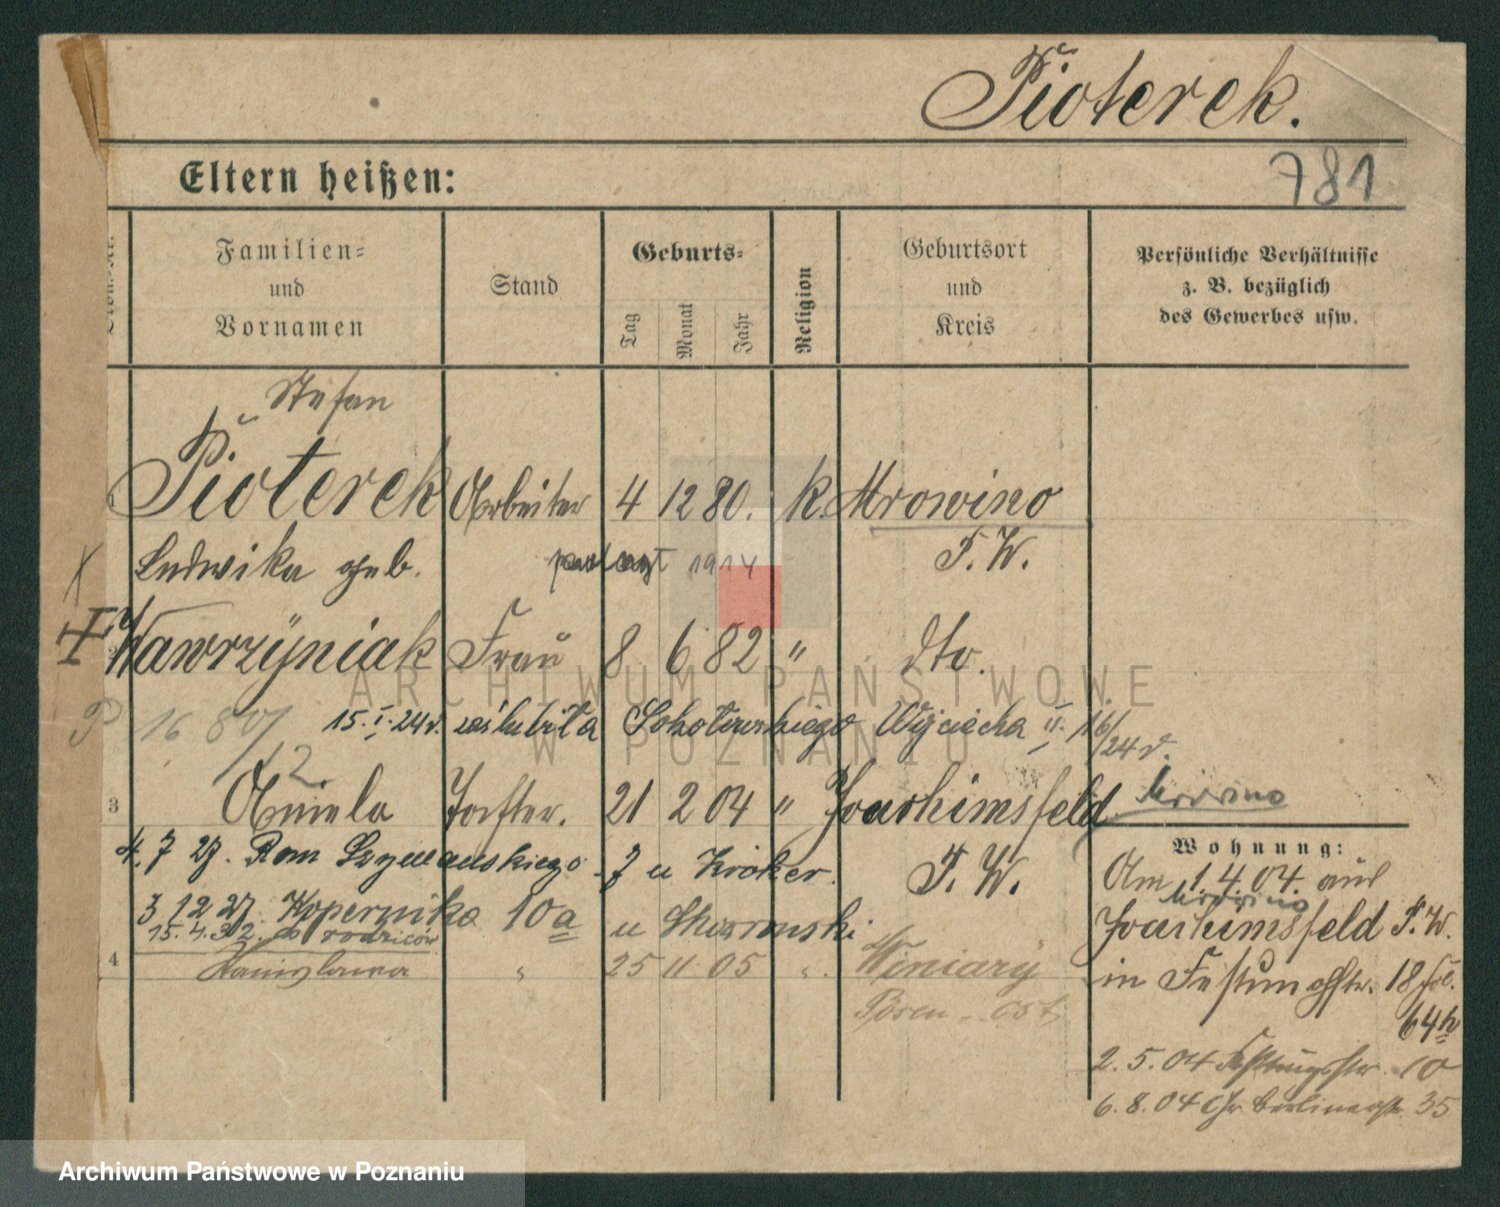 Pioterek.
781
Eltern heißen:
Familien=
und
Vornamen
Stand
Geburts=
Tag
Monat
Jahr
Religion
Geburtsort
und
Kreis
Persönliche Verhältnisse
z. B. bezüglich
des Gewerbes usw.
Stefan
Pioterek Arbeiter 4 12 80. k. Mrowino
P. W.
Ludwika geb. 1914
Wawrzyniak Frau 8 6 82 " dto.
P 16 15. I. 24 r. zaślubiła Wojciecha II. 16/
24 r.
12.
3 Aniela Tochter. 21 2 04 " Joachimsfeld
P. W.
4. 7 27. Rom Szymanskiego 7 u Kroker.
3 12 27. Kopernika 10a u Skowronski
15. 4. 32. do rodziców
4 Stanislawa " 25 11 05 " Winiary
Posen - Ost
Mrowino
Wohnung:
Am 1. 4. 04. aus
Mrowino
Joachimsfeld P. W.
in Festungsstr. 18
64
2. 5. 04 Festungsstr. 10
6. 8. 04 Gr. Berlinerstr. 35
ARCHIWUM PAŃSTWOWE
W POZNANIU
Archiwum Państwowe w Poznaniu